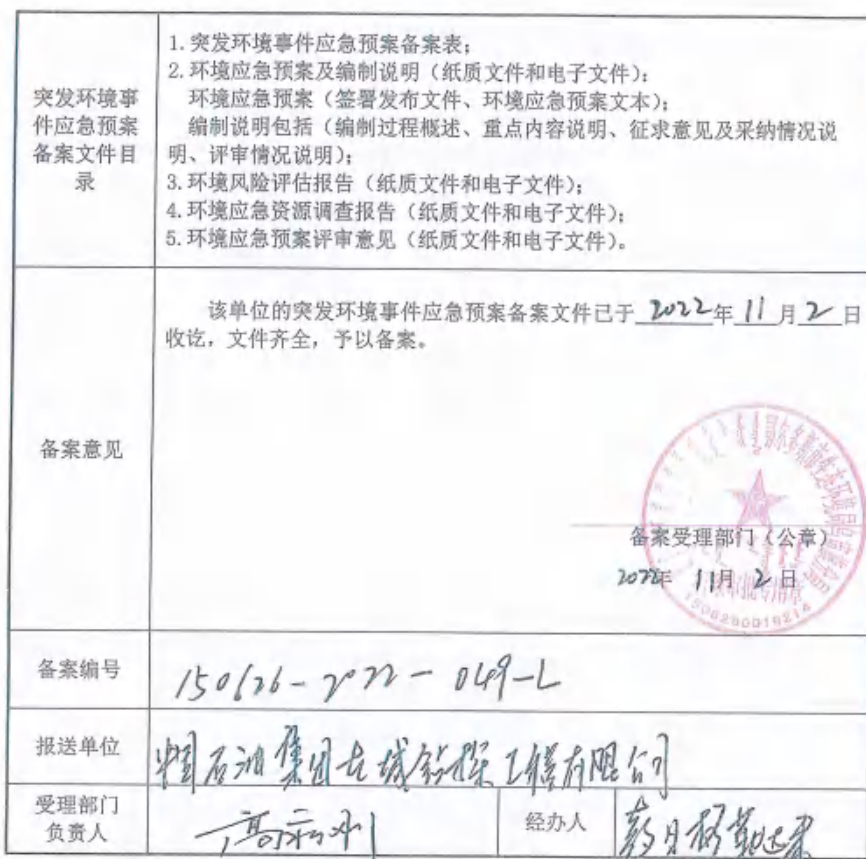 突发环境事
件应急预案
备案文件目
录
1.突发环境事件应急预案备案表;
2.环境应急预案及编制说明(纸质文件和电子文件);
环境应急预案(签署发布文件、环境应急预案文本);
编制说明包括(编制过程概述、重点内容说明、征求意见及采纳情况说
明、评审情况说明);
3.环境风险评估报告(纸质文件和电子文件);
4.环境应急资源调查报告(纸质文件和电子文件);
5.环境应急预案评审意见(纸质文件和电子文件)。
备案意见
该单位的突发环境事件应急预案备案文件已于 2022 年 11 月 2 日
收讫,文件齐全,予以备案。
备案受理部门(公章)
2022年 11月 2 日
备案编号
150626-2022-049-L
报送单位
中国石油集团长城钻探工程有限公司
受理部门
负责人
经办人